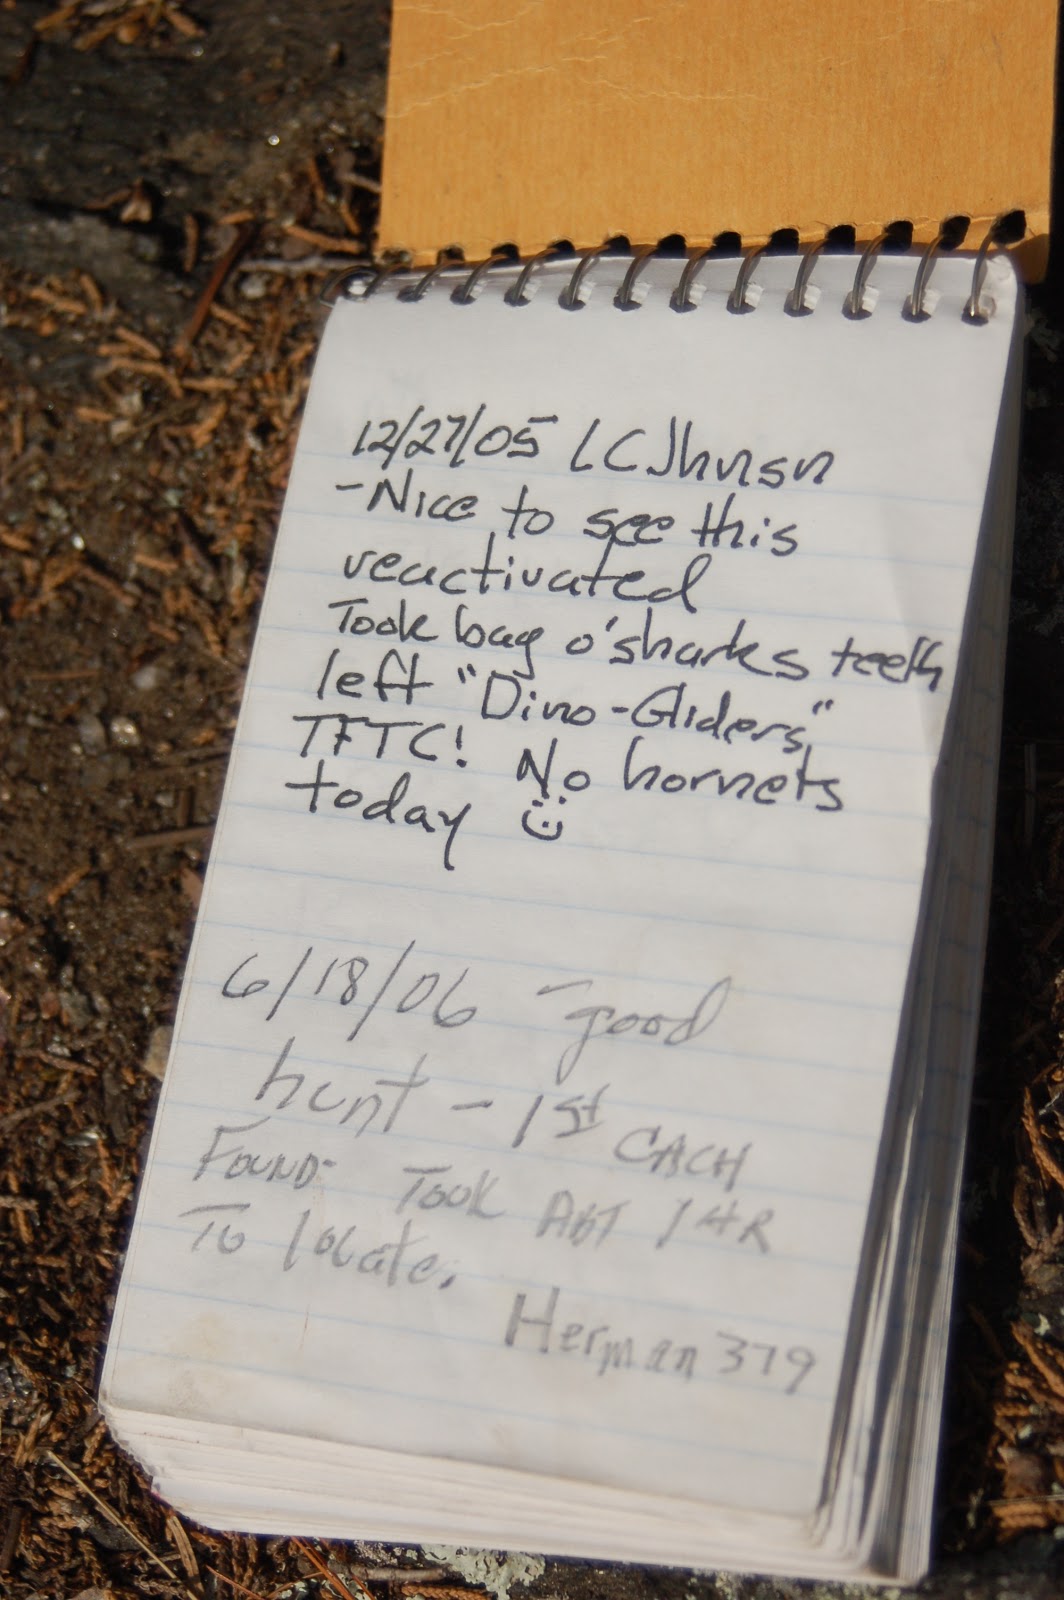 12/27/05 LCJhnsn
-Nice to see this
reactivated
Took bag o'sharks teeth
left "Dino-Gliders"
TFTC! No hornets
today :)
6/18/06 - good
hunt - 1st CACH
FOUND- TOOK ABT 1 HR
To locate.
Herman 379